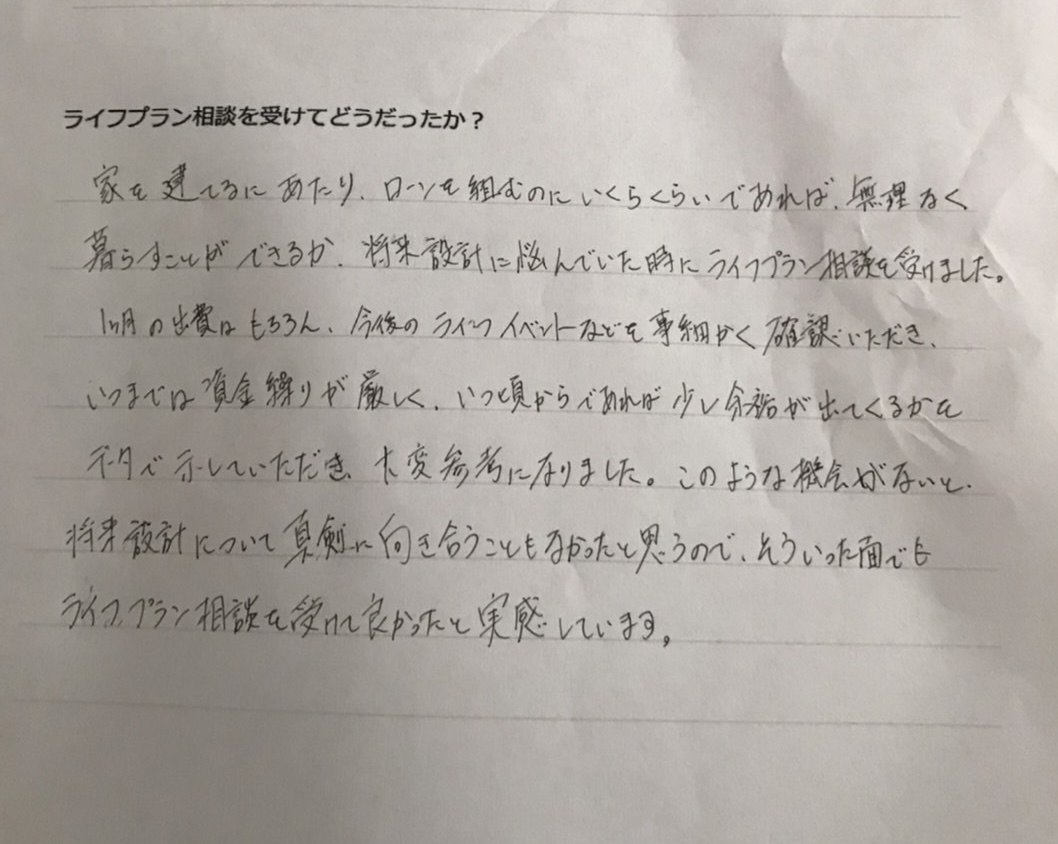 ライフプラン相談を受けてどうだったか？
家を建てるにあたり、ローンを組むのにいくらくらいであれば、無理なく
暮らすことができるか、将来設計に悩んでいた時にライフプラン相談を受けました。
1ヶ月の出費はもちろん、今後のライフイベントなどを事細かく確認いただき、
いつまでは資金繰りが厳しく、いつ頃からであれば少し余裕が出てくるかを
データで示していただき、大変参考になりました。このような機会がないと、
将来設計について真剣に向き合うこともなかったと思うので、そういった面でも
ライフプラン相談を受けて良かったと実感しています。